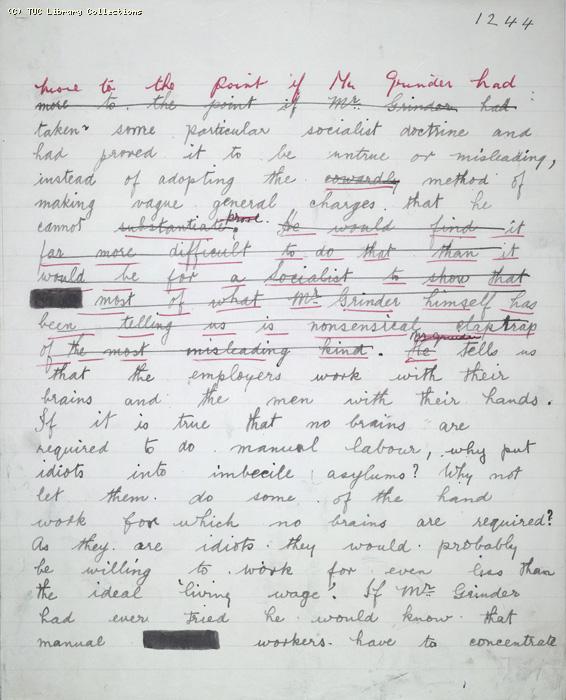 (C) TUC Library Collections
1244
more to the point if Mr Grinder had
more to the point if Mr Grinder had
taken some particular socialist doctrine and
had proved it to be untrue or misleading,
instead of adopting the cowardly method of
making vague general charges that he
cannot substantiate. prove. He would find it
far more difficult to do that than it
would be for a Socialist to show that
most of what Mr Grinder himself has
been telling us is nonsensical claptrap
of the most misleading kind. He Mr Grinder tells us
that the employers work with their
brains and the men with their hands.
If it is true that no brains are
required to do manual labour, why put
idiots into imbecile asylums? Why not
let them do some of the hand
work for which no brains are required?
As they are idiots they would probably
be willing to work for even less than
the ideal 'living wage'. If Mr Grinder
had ever tried he would know that
manual workers have to concentrate